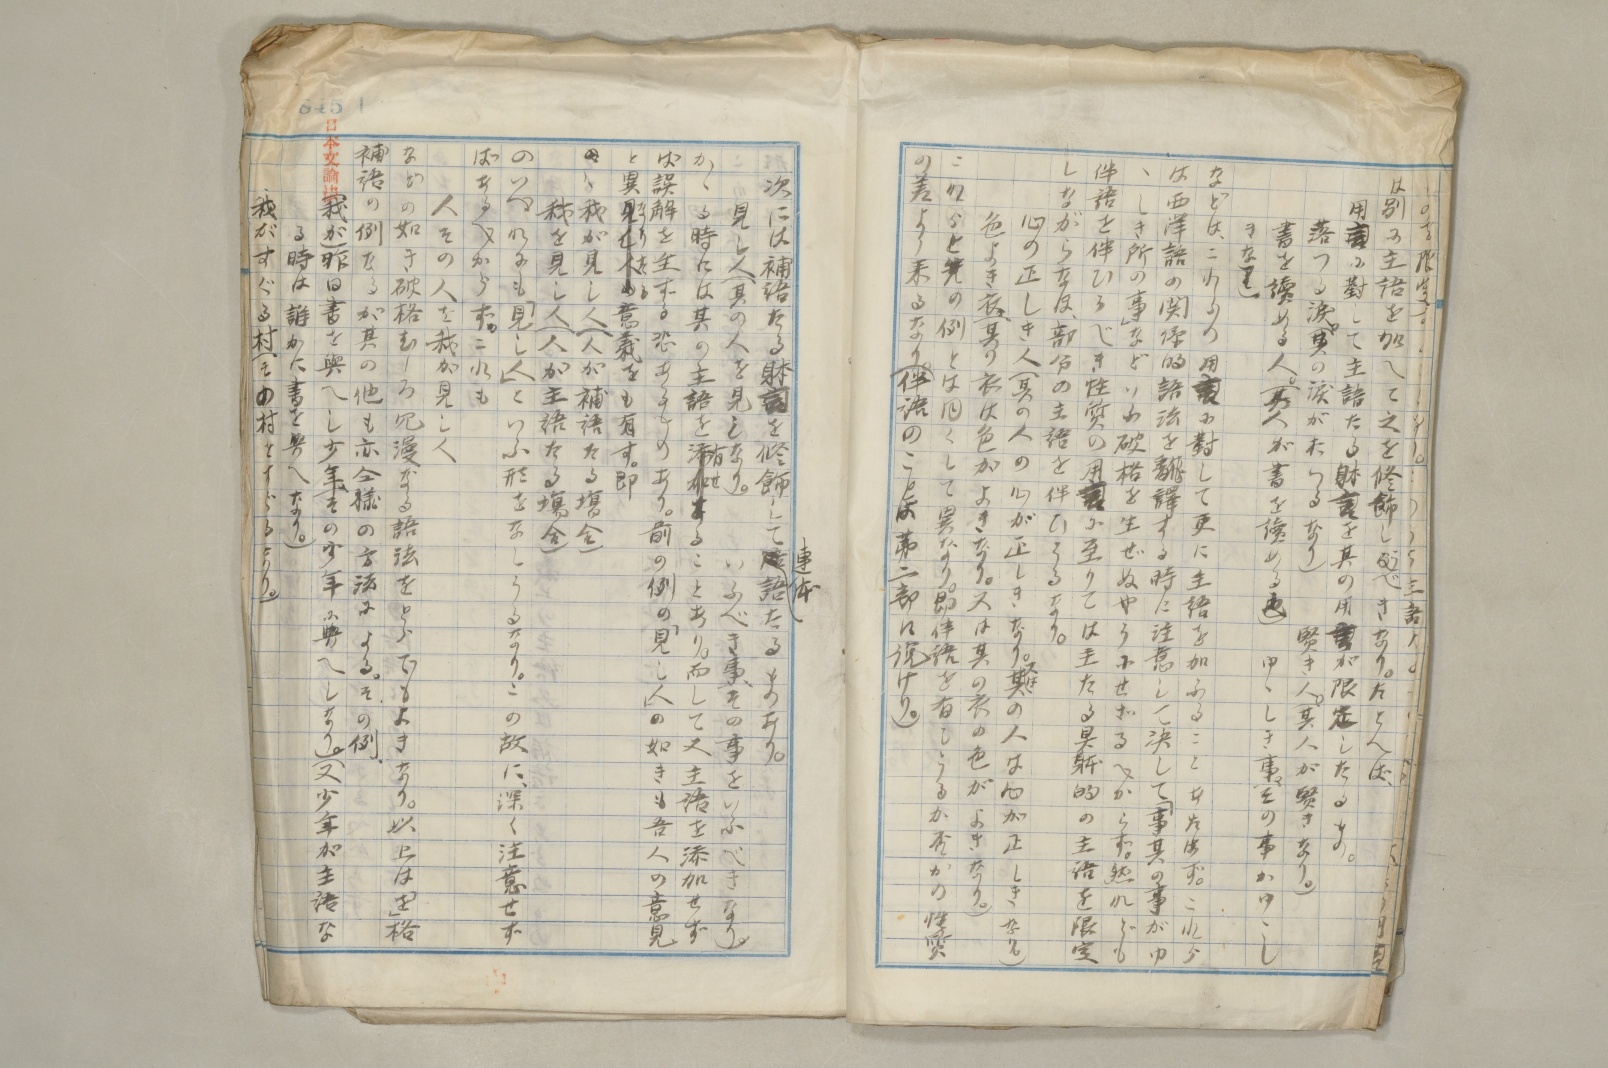 は別に主語を加へて之を修飾し◯べきなり。たとへば、
用言に對して主語たる躰言を其の用言が限定したるもの。
落つる涙。(其の涙がおつるなり)
賢き人。(其人が賢きなり。)
書を讀める人。(其人が書を讀める也)
ゆゝしき事、(その事がゆゝし
きなり)
などは、これらの用言に對して更に主語を加ふることあたはず。これら
は西洋語の関係的語法を飜譯する時に注意して決して「事其の事がゆ
ゝしき所の事」などいふ破格を生ぜぬやうにせざるべからず。然れども
伴語を伴ひうべき性質の用言に至りては主たる具躰的の主語を限定
しながらなほ、部分の主語を伴ひうるなり。
心の正しき人(其の人の心が正しきなり。其の人は心が正しきなり)
色よき衣、(其の衣は色がよきなり。又は其の衣の色がよきなり。)
これらと先の例とは同くして異なり。即伴語を有しうるか否かの性質
の差より来るなり。(伴語のことは第二部に説けり。)
次には補語たる躰言を修飾して連体語たるものあり。
見し人(其の人を見しなり。)
いふべき事、(その事をいふべきなり。)
かゝる時には其の主語を添加することあり。而して又主語を添加せず
ば誤解を生ずる恐あるものあり。前の例の「見し人」の如きも吾人の意見
と異りたる意義をも有す。即
我が見し人(人が補語たる塲合)
我を見し人(人が主語たる塲合)
のいづれにも「見し人」といふ形をなしうるなり。この故に、深く注意せず
ばあるべからず。これも
人その人を我が見し人
などの如き破格むしろ冗漫なる語法をとらでもよきなり。以上は「四」格
補語の例なるが其の他も亦仝様の方法による。その例、
(我が)昨日書を與へし少年、(その少年に與へしなり。)(又少年が主語な
る時は誰かに書を與へしなり。)
我がすぐる村(その村をすぐるなり。)
日本文論